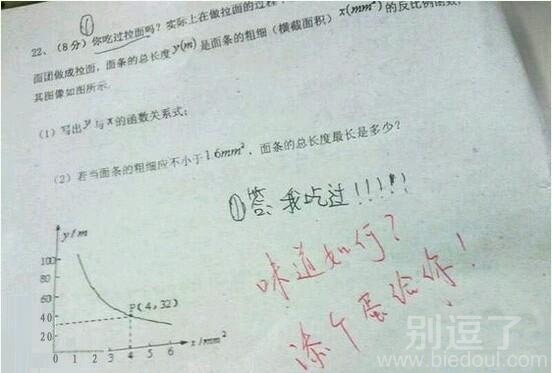 ①
22、(8分)你吃过拉面吗？实际上在做拉面的过程
面团做成拉面，面条的总长度y(m)是面条的粗细（横截面积）x(mm²)的反比例函数，
其图像如图所示．
(1) 写出y与x的函数关系式；
(2) 若当面条的粗细应不小于1.6mm²，面条的总长度最长是多少？
①答：我吃过！！！！！
味道如何？
添个蛋给你！
y/m
100
80
60
40
20
P(4,32)
0 1 2 3 4 5 6 x/mm²
别逗了
www.biedoul.com